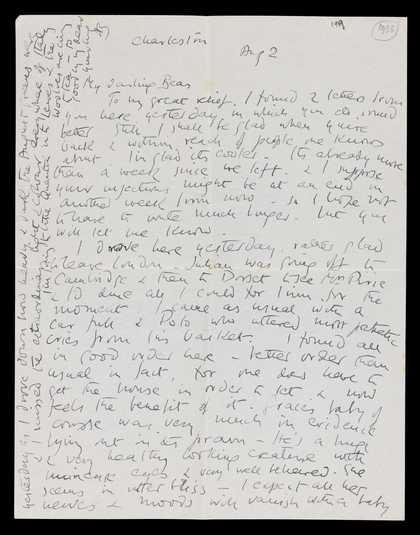 1935
Charleston
Aug 2
My darling Bear
To my great relief, I found 2 letters from
you here yesterday, in which you do sound
better. Still I shall be glad when you're
back & within reach of people one knows
about. I'm glad it's cooler. It's already more
than a week since we left. & I suppose
your injections might be at an end in
another week from now. so I hope not
to have to write much longer. but you
will let me know.
I drove here yesterday, rather glad
to leave London. Julian was going off to
Cambridge & then to Dorset to see
& I'd done all I could for him for the
moment. I came as usual with a
car full & who uttered most pathetic
cries from his basket. I found all
in good order here - better order than
usual in fact, for one does have to
get the house in order to let & now
feels the benefit of it. Grace's baby of
course was very much in evidence
lying out in its pram - He's a huge
& very healthy looking creature with
immense eyes & very well behaved. She
seems in utter bliss - I expect all her
nerves & moods will vanish with a baby
yesterday as I drove down how
& I missed the extraordinary light & colour everywhere of Italy